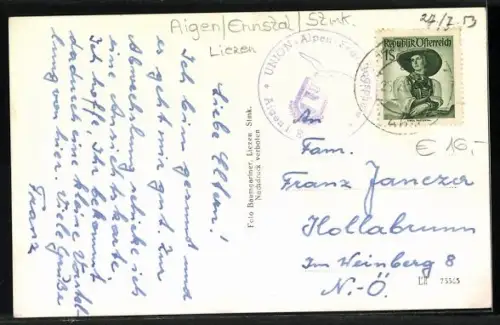 Aigen/Ennstal/Stmk.
Liezen
24/7.53
UNION - Alpen
Republik Österreich
1S
€ 16,-
Liebe Eltern!
Ich bin gesund und
es geht mir gut. Zur
Abwechslung schicke ich
eine Ansichtskarte.
Ich hoffe, Ihr bekommt
dadurch eine kleine Vorstel-
lung von hier. Viele Grüße
Franz
Foto Baumgartner, Liezen Stmk.
Nachdruck verboten
An
Fam.
Franz Janczer
Hollabrunn
Im Weinberg 8
N.-Ö.
75515